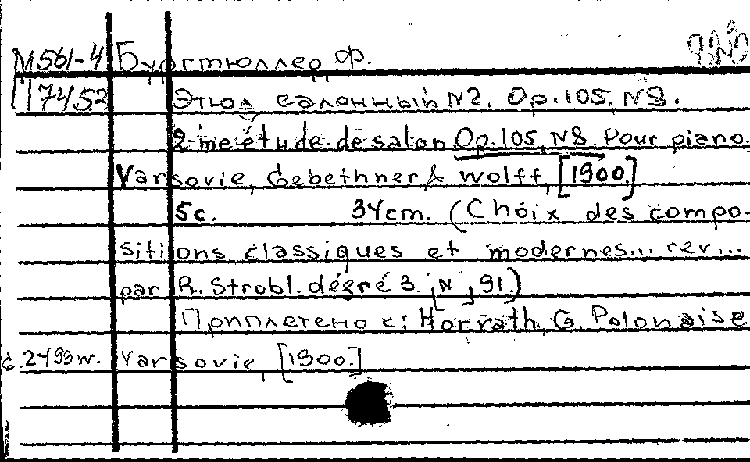 М561-4 Бургмюллер, Ф.
17452 Этюд салонный №2. Op.105, №8.
2 me étude de salon Op.105, №8 Pour piano
Varsovie, Gebethner & Wolff, [1900.]
5с. 34cm. (Choix des compo-
sitions classiques et modernes... rev...
par R. Strobl. dégré 3, № 91)
Приплетено с: Horvath, G. Polonaise
с.2493м. Varsovie, [1900.]